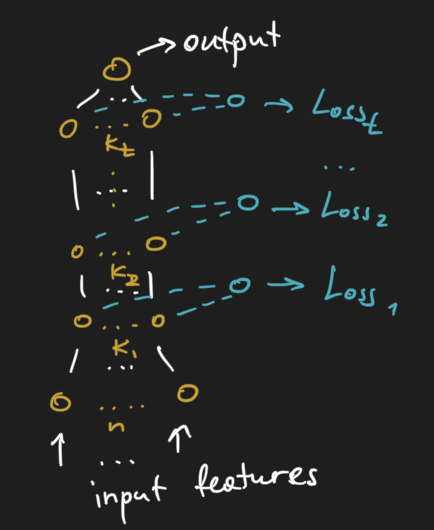 output
Loss t
K t
...
Loss 2
K 2
Loss 1
K 1
n
input features